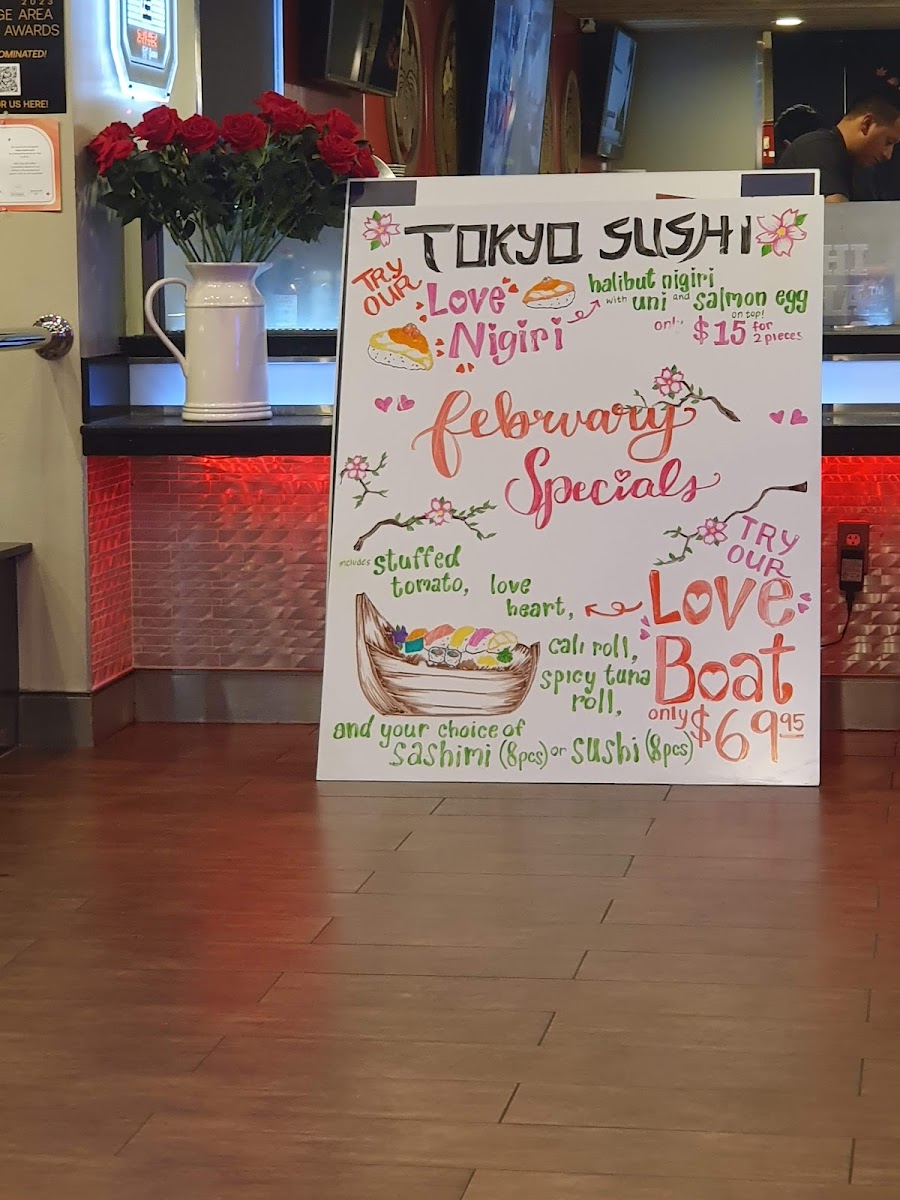 2023
GE AREA
AWARDS
OMINATED!
OR US HERE!
TOKYO SUSHI
TRY
OUR
Love
Nigiri
halibut nigiri
with uni and salmon egg
on top!
only $15 for
2 pieces
February
Specials
TRY
OUR
Love
Boat
only $69.95
includes stuffed
tomato, love
heart,
cali roll,
spicy tuna
roll,
and your choice of
sashimi (8pcs) or sushi (8pcs)